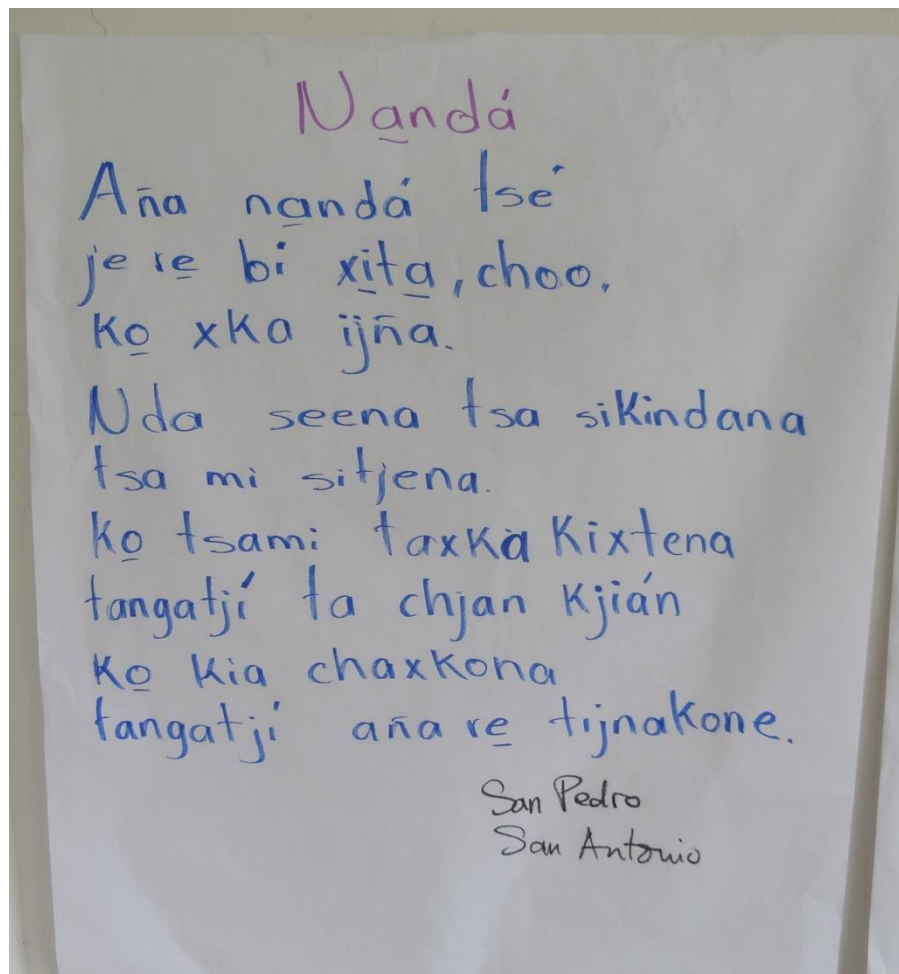 Na̱ndá
Aña na̱ndá tsé
je re̱ bi xi̱ta̱, choo,
ko̱ xka ijña.
Nda seena tsa sikindana
tsa mi sitjena.
ko̱ tsami taxkà kixtena
tangatjí ta chjan kjián
ko̱ kia chaxkona
tangatjí aña re̱ tijnakone.
San Pedro
San Antonio